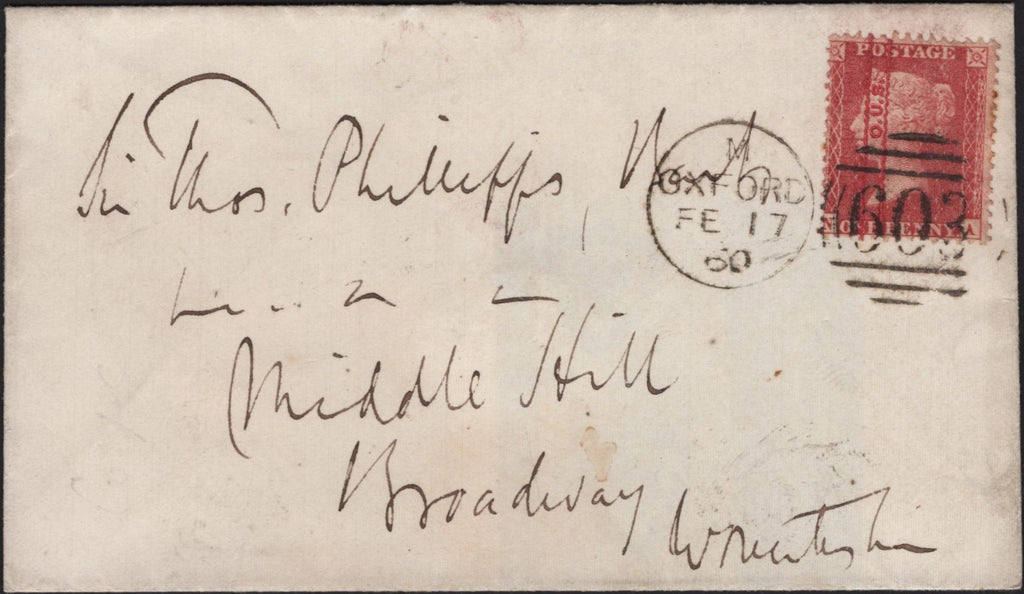 Sir Thos. Phillipps, Bart
Middle Hill
Broadway
Worcestershire
M
OXFORD
FE 17
60
POSTAGE
O.U.S.
603
N ONE PENNY A